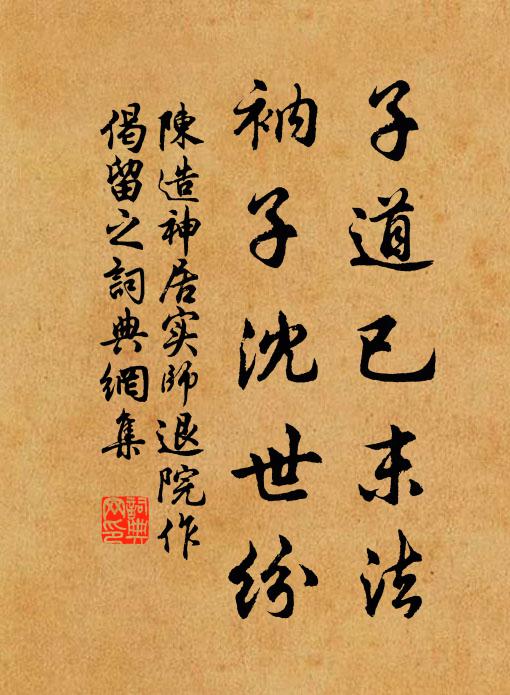 子道已末法
衲子沈世纷
陳造神居实師退院作
偈留之詞典網集
詞典
网印